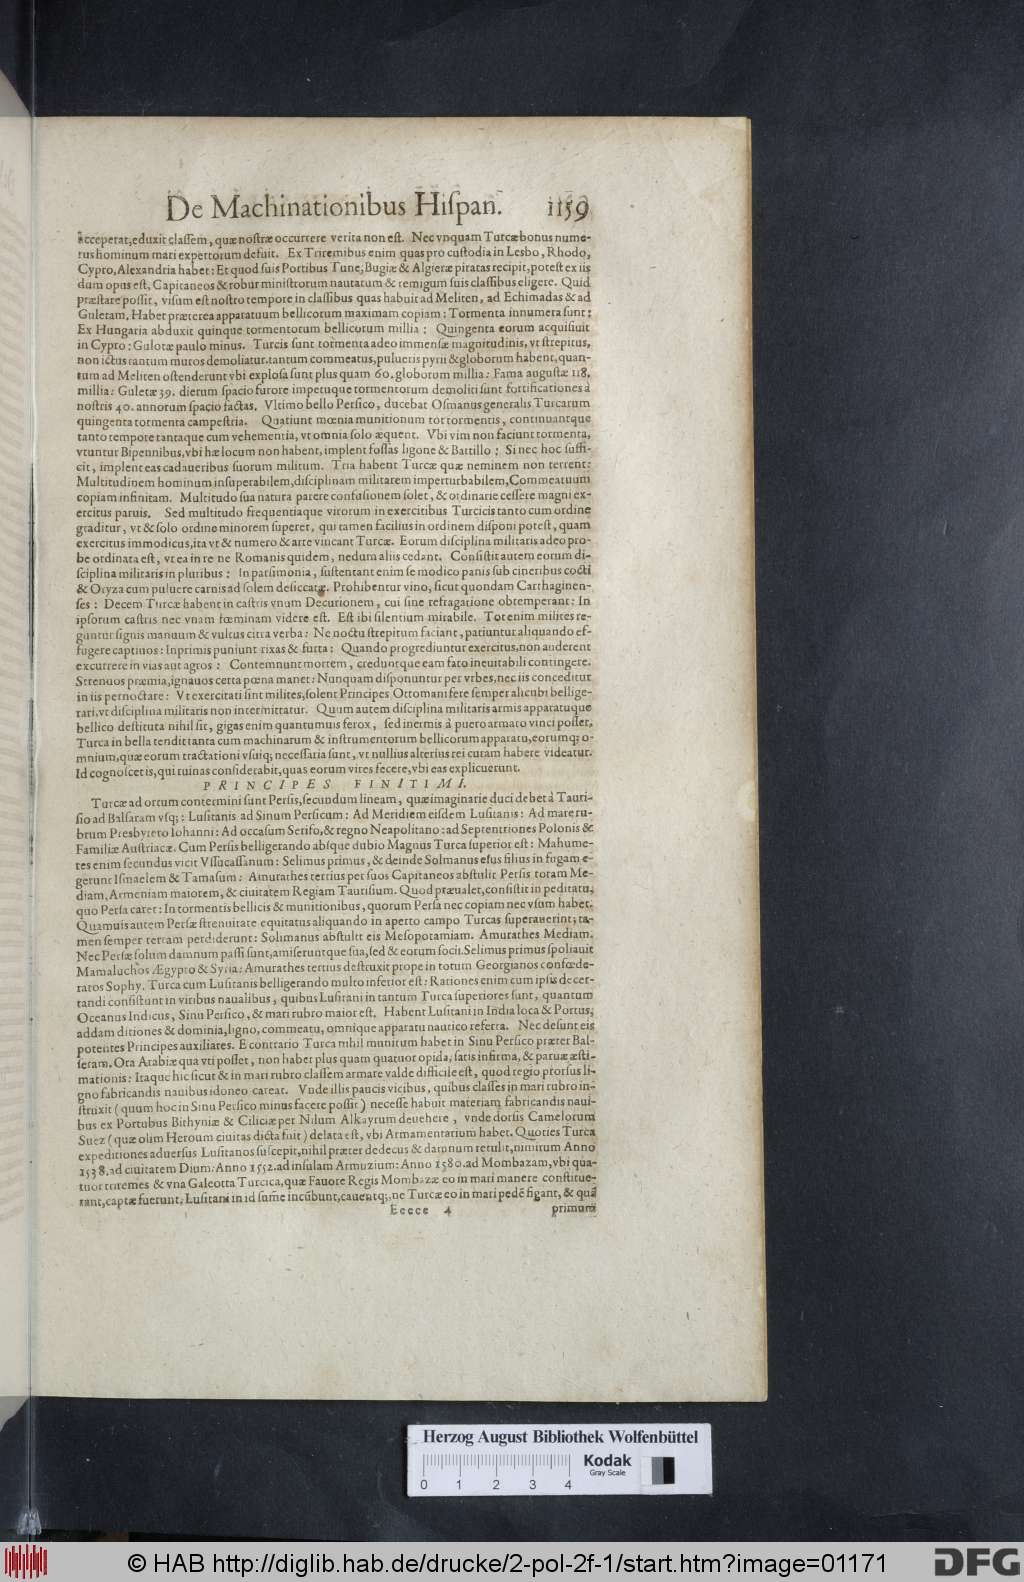 De Machinationibus Hiſpan. 1159
acceperat, eduxit claſſem, quæ noſtræ occurrere verita non eſt. Nec vnquam Turcæ bonus nume-
rus hominum mari expertorum defuit. Ex Triremibus enim quas pro cuſtodia in Lesbo, Rhodo,
Cypro, Alexandria habet: Et quod ſuis Portibus Tune, Bugiæ & Algieræ piratas recipit, poteſt ex iis
dum opus eſt, Capitaneos & robur miniſtrorum nautarum & remigum ſuis claſſibus eligere. Quid
præſtare poſſit, viſum eſt noſtro tempore in claſſibus quas habuit ad Meliten, ad Echimadas & ad
Guletam. Habet præterea apparatuum bellicorum maximam copiam: Tormenta innumera ſunt:
Ex Hungaria abduxit quinque tormentorum bellicorum millia: Quingenta eorum acquiſiuit
in Cypro: Gulotæ paulo minus. Turcis ſunt tormenta adeo immenſæ magnitudinis, vt ſtrepitus,
non ictus tantum muros demoliatur, tantum commeatus, pulueris pyrii & globorum habent, quan-
tum ad Meliten oſtenderunt vbi exploſa ſunt plus quam 60. globorum millia: Fama auguſtæ 118.
millia: Guletæ 39. dierum ſpacio furore impetuque tormentorum demoliti ſunt fortificationes à
noſtris 40. annorum ſpacio factas. Vltimo bello Perſico, ducebat Oſmanus generalis Turcarum
quingenta tormenta campeſtria. Quatiunt mœnia munitionum tot tormentis, continuantque
tanto tempore tantaque cum vehementia, vt omnia ſolo æquent. Vbi vim non faciunt tormenta,
vtuntur Bipennibus, vbi hæ locum non habent, implent foſſas ligone & Battillo: Si nec hoc ſuffi-
cit, implent eas cadaueribus ſuorum militum. Tria habent Turcæ quæ neminem non terrent:
Multitudinem hominum inſuperabilem, diſciplinam militarem imperturbabilem, Commeatuum
copiam infinitam. Multitudo ſua natura parere confuſionem ſolet, & ordinarie ceſſere magni ex-
ercitus paruis. Sed multitudo frequentiaque virorum in exercitibus Turcicis tanto cum ordine
graditur, vt & ſolo ordine minorem ſuperet, qui tamen facilius in ordinem diſponi poteſt, quam
exercitus immodicus, ita vt & numero & arte vincant Turcæ. Eorum diſciplina militaris adeo pro-
be ordinata eſt, vt ea in re ne Romanis quidem, nedum aliis cedant. Conſiſtit autem eorum di-
ſciplina militaris in pluribus: In parſimonia, ſuſtentant enim ſe modico panis ſub cineribus cocti
& Oryza cum puluere carnis ad ſolem deſiccatæ. Prohibentur vino, ſicut quondam Carthaginen-
ſes: Decem Turcæ habent in caſtris vnum Decurionem, cui ſine refragatione obtemperant: In
ipſorum caſtris nec vnam fœminam videre eſt. Eſt ibi ſilentium mirabile. Tot enim milites re-
guntur ſignis manuum & vultus citra verba: Ne noctu ſtrepitum faciant, patiuntur aliquando ef-
fugere captiuos: Inprimis puniunt rixas & furta: Quando progrediuntur exercitus, non auderent
excurrere in vias aut agros: Contemnunt mortem, creduntque eam fato ineuitabili contingere.
Strenuos præmia, ignauos certa pœna manet: Nunquam diſponuntur per vrbes, nec iis conceditur
in iis pernoctare: Vt exercitati ſint milites, ſolent Principes Ottomani fere ſemper alicubi bellige-
rari, vt diſciplina militaris non intermittatur. Quum autem diſciplina militaris armis apparatuque
bellico deſtituta nihil ſit, gigas enim quantumuis ferox, ſed inermis à puero armato vinci poſſet,
Turca in bella tendit tanta cum machinarum & inſtrumentorum bellicorum apparatu, eorumq; o-
mnium, quæ eorum tractationi vſuiq; neceſſaria ſunt, vt nullius alterius rei curam habere videatur.
Id cognoſcetis, qui ruinas conſiderabit, quas eorum vires fecere, vbi eas explicuerunt.
PRINCIPES FINITIMI.
Turcæ ad ortum contermini ſunt Perſis, ſecundum lineam, quæ imaginarie duci debet à Tauri-
ſio ad Balſaram vſq;: Luſitanis ad Sinum Perſicum: Ad Meridiem eiſdem Luſitanis: Ad mare ru-
brum Presbytero Iohanni: Ad occaſum Serifo, & regno Neapolitano: ad Septentriones Polonis &
Familiæ Auſtriacæ. Cum Perſis belligerando abſque dubio Magnus Turca ſuperior eſt: Mahume-
tes enim ſecundus vicit Vſſucaſſanum: Selimus primus, & deinde Solmanus eſus filius in fugam e-
gerunt Iſmaelem & Tamaſum: Amurathes tertius per ſuos Capitaneos abſtulit Perſis totam Me-
diam, Armeniam maiorem, & ciuitatem Regiam Tauriſium. Quod præualet, conſiſtit in peditatu,
quo Perſa caret: In tormentis bellicis & munitionibus, quorum Perſa nec copiam nec vſum habet.
Quamuis autem Perſæ ſtrenuitate equitatus aliquando in aperto campo Turcas ſuperauerint; ta-
men ſemper terram perdiderunt: Solimanus abſtulit eis Meſopotamiam. Amurathes Mediam.
Nec Perſæ ſolum damnum paſſi ſunt, amiſeruntque ſua, ſed & eorum ſocii. Selimus primus ſpoliauit
Mamaluchos Ægypto & Syria: Amurathes tertius deſtruxit prope in totum Georgianos confœde-
ratos Sophy. Turca cum Luſitanis belligerando multo inferior eſt: Rationes enim cum ipſis decer-
tandi conſiſtunt in viribus naualibus, quibus Luſitani in tantum Turca ſuperiores ſunt, quantum
Oceanus Indicus, Sinu Perſico, & mari rubro maior eſt. Habent Luſitani in India loca & Portus,
addam ditiones & dominia, ligno, commeatu, omnique apparatu nautico referta. Nec deſunt eis
potentes Principes auxiliares. E contrario Turca nihil munitum habet in Sinu Perſico præter Bal-
ſeram. Ora Arabiæ qua vti poſſet, non habet plus quam quatuor opida, ſatis infirma, & paruæ æſti-
mationis: Itaque hic ſicut & in mari rubro claſſem armare valde difficile eſt, quod regio prorſus li-
gno fabricandis nauibus idoneo careat. Vnde illis paucis vicibus, quibus claſſes in mari rubro in-
ſtruxit (quum hoc in Sinu Perſico minus facere poſſit) neceſſe habuit materiam fabricandis naui-
bus ex Portubus Bithyniæ & Ciliciæ per Nilum Alkayrum deuehere, vnde dorſis Camelorum
Suez (quæ olim Heroum ciuitas dicta fuit) delata eſt, vbi Armamentarium habet. Quoties Turca
expeditiones aduerſus Luſitanos ſuſcepit, nihil præter dedecus & damnum retulit, nimirum Anno
1538. ad ciuitatem Dium: Anno 1552. ad inſulam Armuzium: Anno 1580. ad Mombazam, vbi qua-
tuor triremes & vna Galeotta Turcica, quæ Fauore Regis Mombazæ eo in mari manere conſtitue-
rant, captæ fuerunt: Luſitani in id ſum̄e incūbunt, cauentq;, ne Turcæ eo in mari pedē figant, & quā
Eeeee 4 primum
Herzog August Bibliothek Wolfenbüttel
Kodak
Gray Scale
0 1 2 3 4
© HAB http://diglib.hab.de/drucke/2-pol-2f-1/start.htm?image=01171
DFG